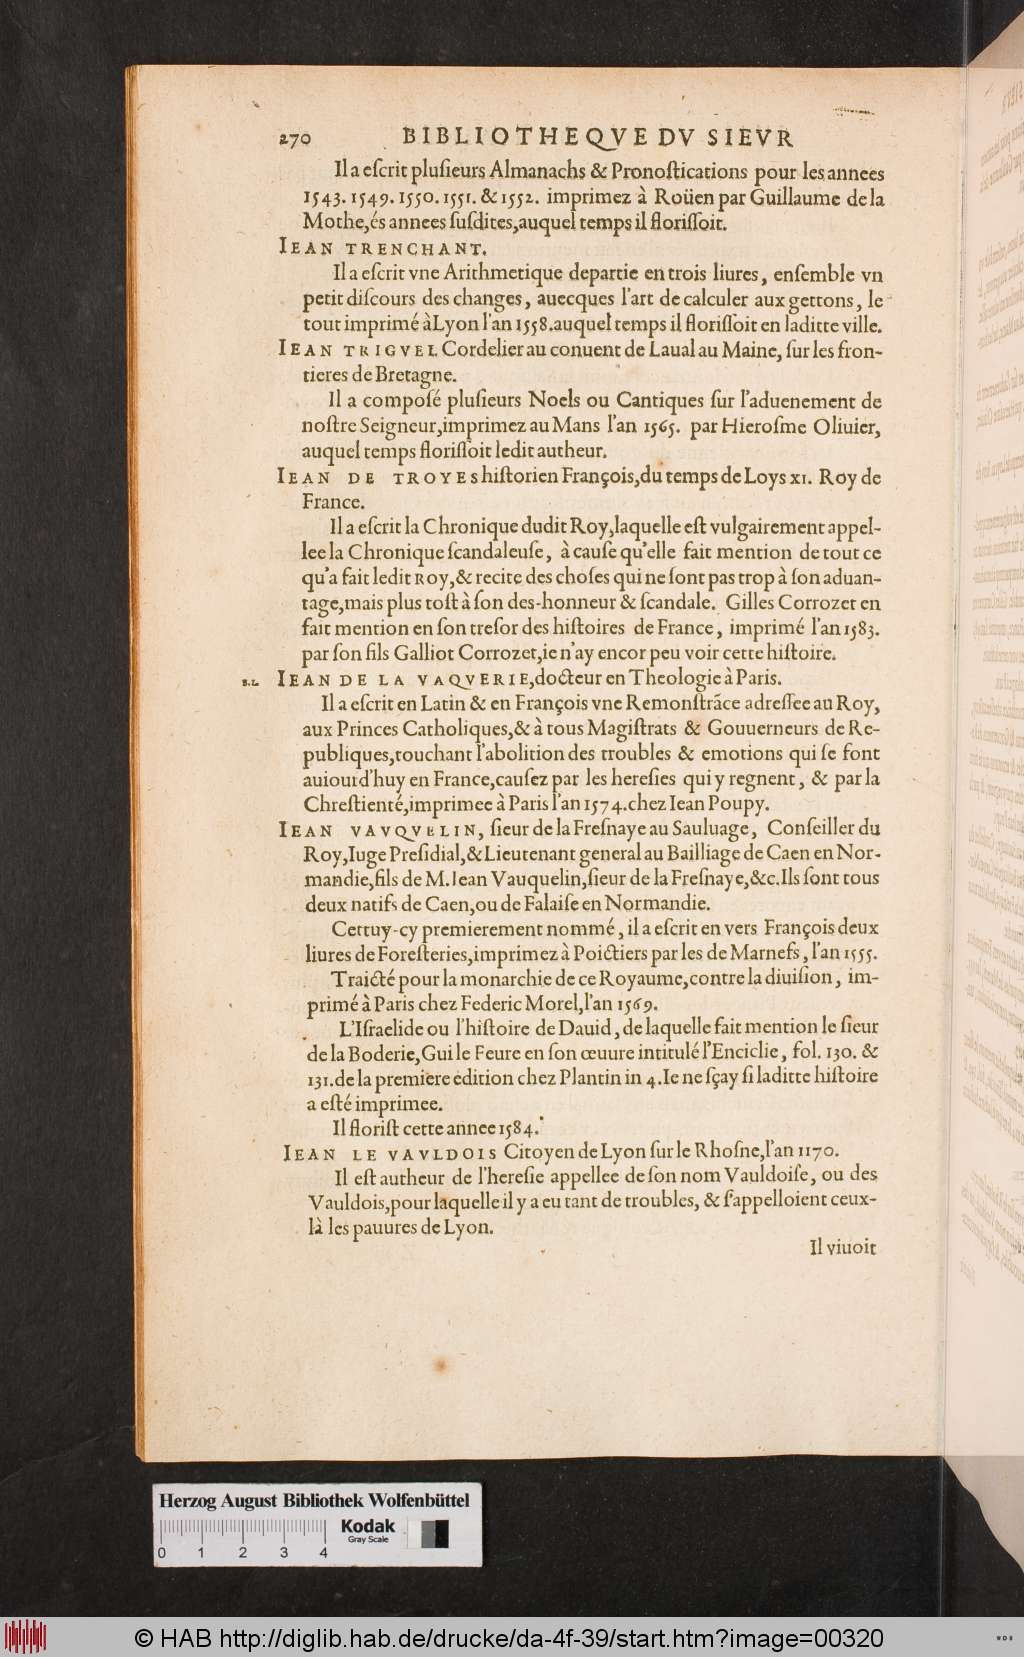 270 BIBLIOTHEQVE DV SIEVR
Il a eſcrit pluſieurs Almanachs & Pronoſtications pour les annees
1543. 1549. 1550. 1551. & 1552. imprimez à Roüen par Guillaume de la
Mothe, és annees ſuſdites, auquel temps il floriſſoit.
IEAN TRENCHANT.
Il a eſcrit vne Arithmetique departie en trois liures, enſemble vn
petit diſcours des changes, auecques l'art de calculer aux gettons, le
tout imprimé à Lyon l'an 1558. auquel temps il floriſſoit en laditte ville.
IEAN TRIGVEL Cordelier au conuent de Laual au Maine, ſur les fron-
tieres de Bretagne.
Il a compoſé pluſieurs Noels ou Cantiques ſur l'aduenement de
noſtre Seigneur, imprimez au Mans l'an 1565. par Hieroſme Oliuier,
auquel temps floriſſoit ledit autheur.
IEAN DE TROYES hiſtorien François, du temps de Loys XI. Roy de
France.
Il a eſcrit la Chronique dudit Roy, laquelle eſt vulgairement appel-
lee la Chronique ſcandaleuſe, à cauſe qu'elle fait mention de tout ce
qu'a fait ledit Roy, & recite des choſes qui ne ſont pas trop à ſon aduan-
tage, mais plus toſt à ſon des-honneur & ſcandale. Gilles Corrozet en
fait mention en ſon treſor des hiſtoires de France, imprimé l'an 1583.
par ſon fils Galliot Corrozet, ie n'ay encor peu voir cette hiſtoire.
B.L. IEAN DE LA VAQVERIE, docteur en Theologie à Paris.
Il a eſcrit en Latin & en François vne Remonſtrãce adreſſee au Roy,
aux Princes Catholiques, & à tous Magiſtrats & Gouuerneurs de Re-
publiques, touchant l'abolition des troubles & emotions qui ſe font
auiourd'huy en France, cauſez par les hereſies qui y regnent, & par la
Chreſtienté, imprimee à Paris l'an 1574. chez Iean Poupy.
IEAN VAVQVELIN, ſieur de la Freſnaye au Sauluage, Conſeiller du
Roy, Iuge Preſidial, & Lieutenant general au Bailliage de Caen en Nor-
mandie, fils de M. Iean Vauquelin, ſieur de la Freſnaye, &c. Ils ſont tous
deux natifs de Caen, ou de Falaiſe en Normandie.
Cettuy-cy premierement nommé, il a eſcrit en vers François deux
liures de Foreſteries, imprimez à Poictiers par les de Marnefs, l'an 1555.
Traicté pour la monarchie de ce Royaume, contre la diuiſion, im-
primé à Paris chez Federic Morel, l'an 1569.
L'Iſraelide ou l'hiſtoire de Dauid, de laquelle fait mention le ſieur
de la Boderie, Gui le Feure en ſon œuure intitulé l'Enciclie, fol. 130. &
131. de la premiere edition chez Plantin in 4. Ie ne ſçay ſi laditte hiſtoire
a eſté imprimee.
Il floriſt cette annee 1584.
IEAN LE VAVLDOIS Citoyen de Lyon ſur le Rhoſne, l'an 1170.
Il eſt autheur de l'hereſie appellee de ſon nom Vauldoiſe, ou des
Vauldois, pour laquelle il y a eu tant de troubles, & ſ'appelloient ceux-
là les pauures de Lyon.
Il viuoit
Herzog August Bibliothek Wolfenbüttel
Kodak
Gray Scale
0 1 2 3 4
© HAB http://diglib.hab.de/drucke/da-4f-39/start.htm?image=00320